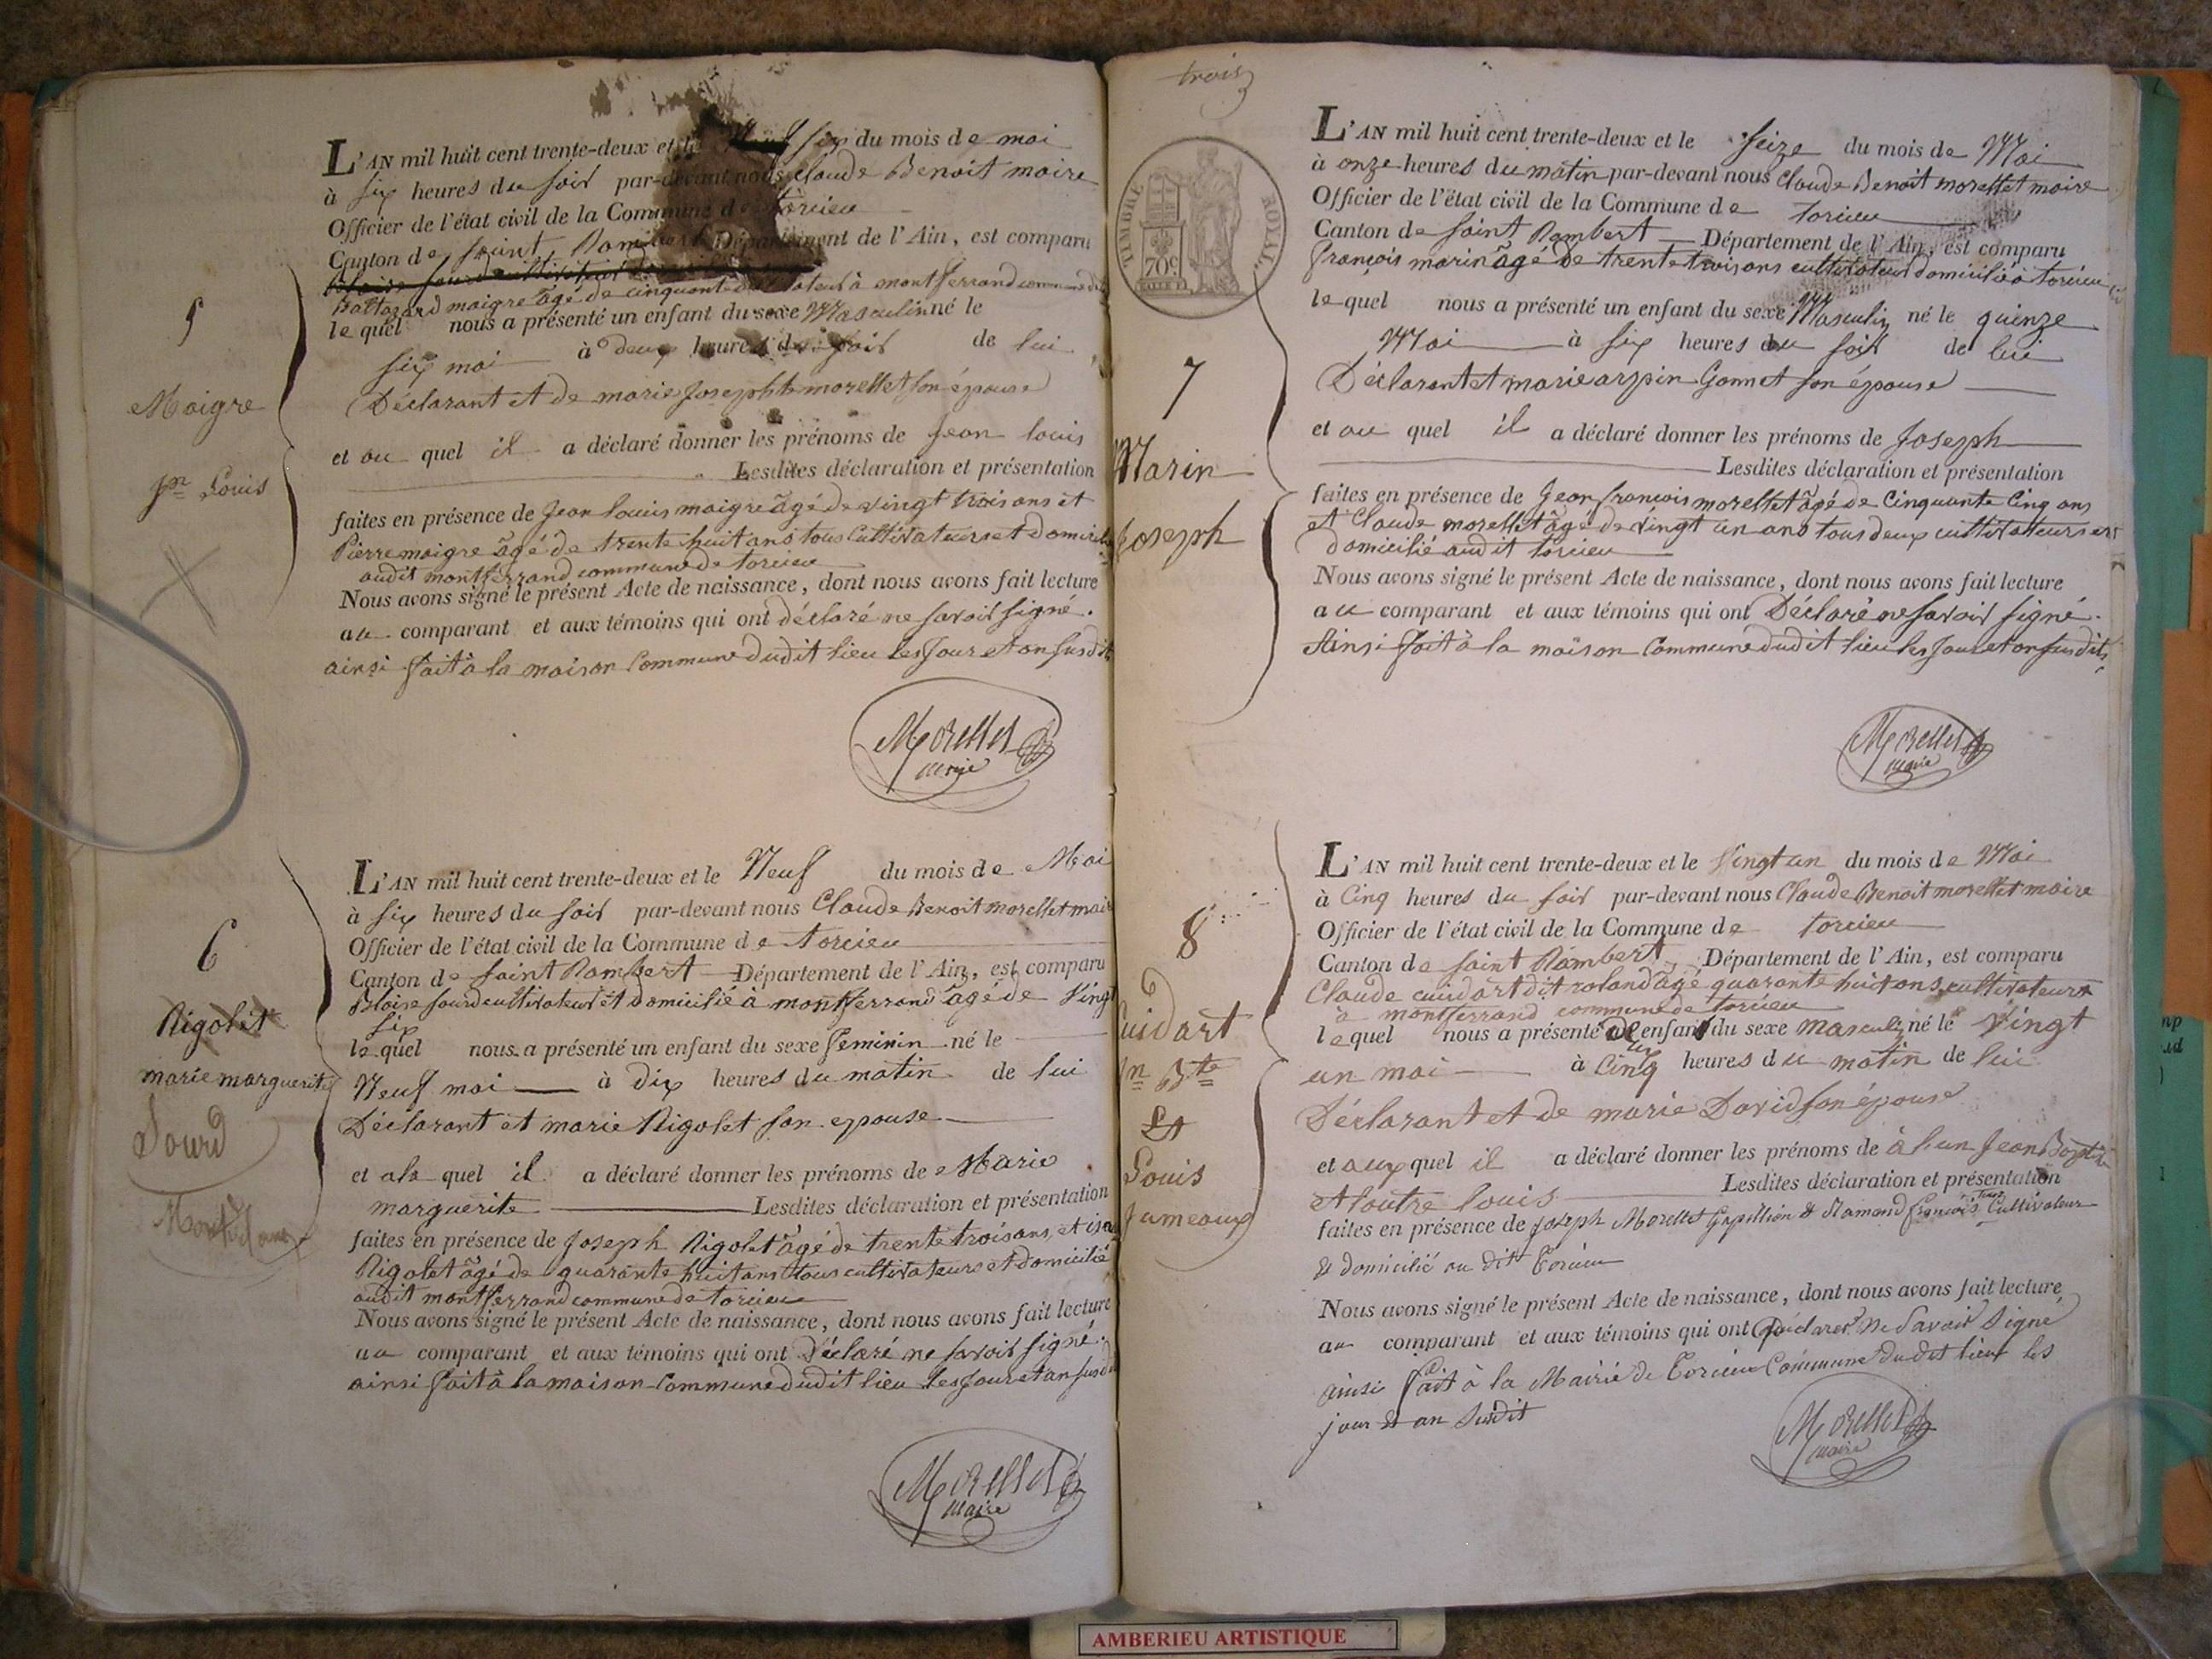 5
Maigre
Jn Louis
L'AN mil huit cent trente-deux et le six du mois de mai
à six heures du soir par-devant nous Claude Benoit maire
Officier de l'état civil de la Commune de torcieu
Canton de saint Rambert Département de l'Ain, est comparu
Baltazard maigre âgé de cinquante à montferrand commune
le quel nous a présenté un enfant du sexe Masculin né le
six mai à deux heures du soir de lui
Déclarant et de marie Josephte morellet son épouse
et au quel il a déclaré donner les prénoms de Jean louis
Lesdites déclaration et présentation
faites en présence de Jean louis maigre âgé de vingt trois ans et
Pierre maigre âgé de trente huit ans tous cultivateurs et domicilié
audit montferrand commune de torcieu
Nous avons signé le présent Acte de naissance, dont nous avons fait lecture
au comparant et aux témoins qui ont déclaré ne savoir signé.
ainsi fait à la maison Commune dudit lieu les Jour et an susdit
Morellet
maire
6
Rigolet
marie marguerite
Sourd
L'AN mil huit cent trente-deux et le Neuf du mois de Mai
à six heures du soir par-devant nous Claude Benoit morellet maire
Officier de l'état civil de la Commune de torcieu
Canton de saint Rambert Département de l'Ain, est comparu
Blaise sourd cultivateur et domicilié à montferrand âgé de Vingt
six
le quel nous a présenté un enfant du sexe feminin né le
Neuf mai à dix heures du matin de lui
Déclarant et marie Rigolet son epouse
et a la quel il a déclaré donner les prénoms de Marie
marguerite Lesdites déclaration et présentation
faites en présence de Joseph Rigolet âgé de trente trois ans et
Rigolet âgé de quarante huit ans tous cultivateurs et domicilié
audit montferrand commune de torcieu
Nous avons signé le présent Acte de naissance, dont nous avons fait lecture
au comparant et aux témoins qui ont Déclaré ne savoir signé.
ainsi fait à la maison Commune dudit lieu les Jour et an susdit
Morellet
Maire
trois
TIMBRE ROYAL
70c
7
Marin
Joseph
L'AN mil huit cent trente-deux et le seize du mois de Mai
à onze heures du matin par-devant nous Claude Benoit morellet maire
Officier de l'état civil de la Commune de torcieu
Canton de saint Rambert Département de l'Ain, est comparu
françois marin âgé de trente trois ans cultivateur domicilié à torcieu
le quel nous a présenté un enfant du sexe Masculin né le quinze
Mai à six heures du soir de lui
Déclarant et marie arpin Gonnet son épouse
et au quel il a déclaré donner les prénoms de Joseph
Lesdites déclaration et présentation
faites en présence de Jean françois morellet âgé de Cinquante Cinq ans
et Claude morellet âgé de vingt un ans tous deux cultivateurs et
domicilié audit torcieu
Nous avons signé le présent Acte de naissance, dont nous avons fait lecture
au comparant et aux témoins qui ont Déclaré ne savoir signé.
Ainsi fait à la maison Commune dudit lieu les Jour et an susdits
Morellet
maire
8
Cuidart
Jn Bte
Et
Louis
Jumeaux
L'AN mil huit cent trente-deux et le Vingt un du mois de Mai
à Cinq heures du soir par-devant nous Claude Benoit morellet maire
Officier de l'état civil de la Commune de torcieu
Canton de saint Rambert Département de l'Ain, est comparu
Claude cuidart dit roland âgé quarante huit ans cultivateur
à montferrand commune de torcieu
le quel nous a présenté deux enfant du sexe masculin né le Vingt
un mai à Cinq heures du matin de lui
Déclarant et de marie David son épouse
et aux quel il a déclaré donner les prénoms de à l'un Jean Baptiste
et loutre louis Lesdites déclaration et présentation
faites en présence de Joseph Morellet & françois tous Cultivateur
& domicilié au dit torcieu
Nous avons signé le présent Acte de naissance, dont nous avons fait lecture
au comparant et aux témoins qui ont déclaré ne savoir signé
ainsi fait à la Mairie de Torcieu Commune du dit lieu les
jour & an susdit
Morellet
maire
AMBERIEU ARTISTIQUE